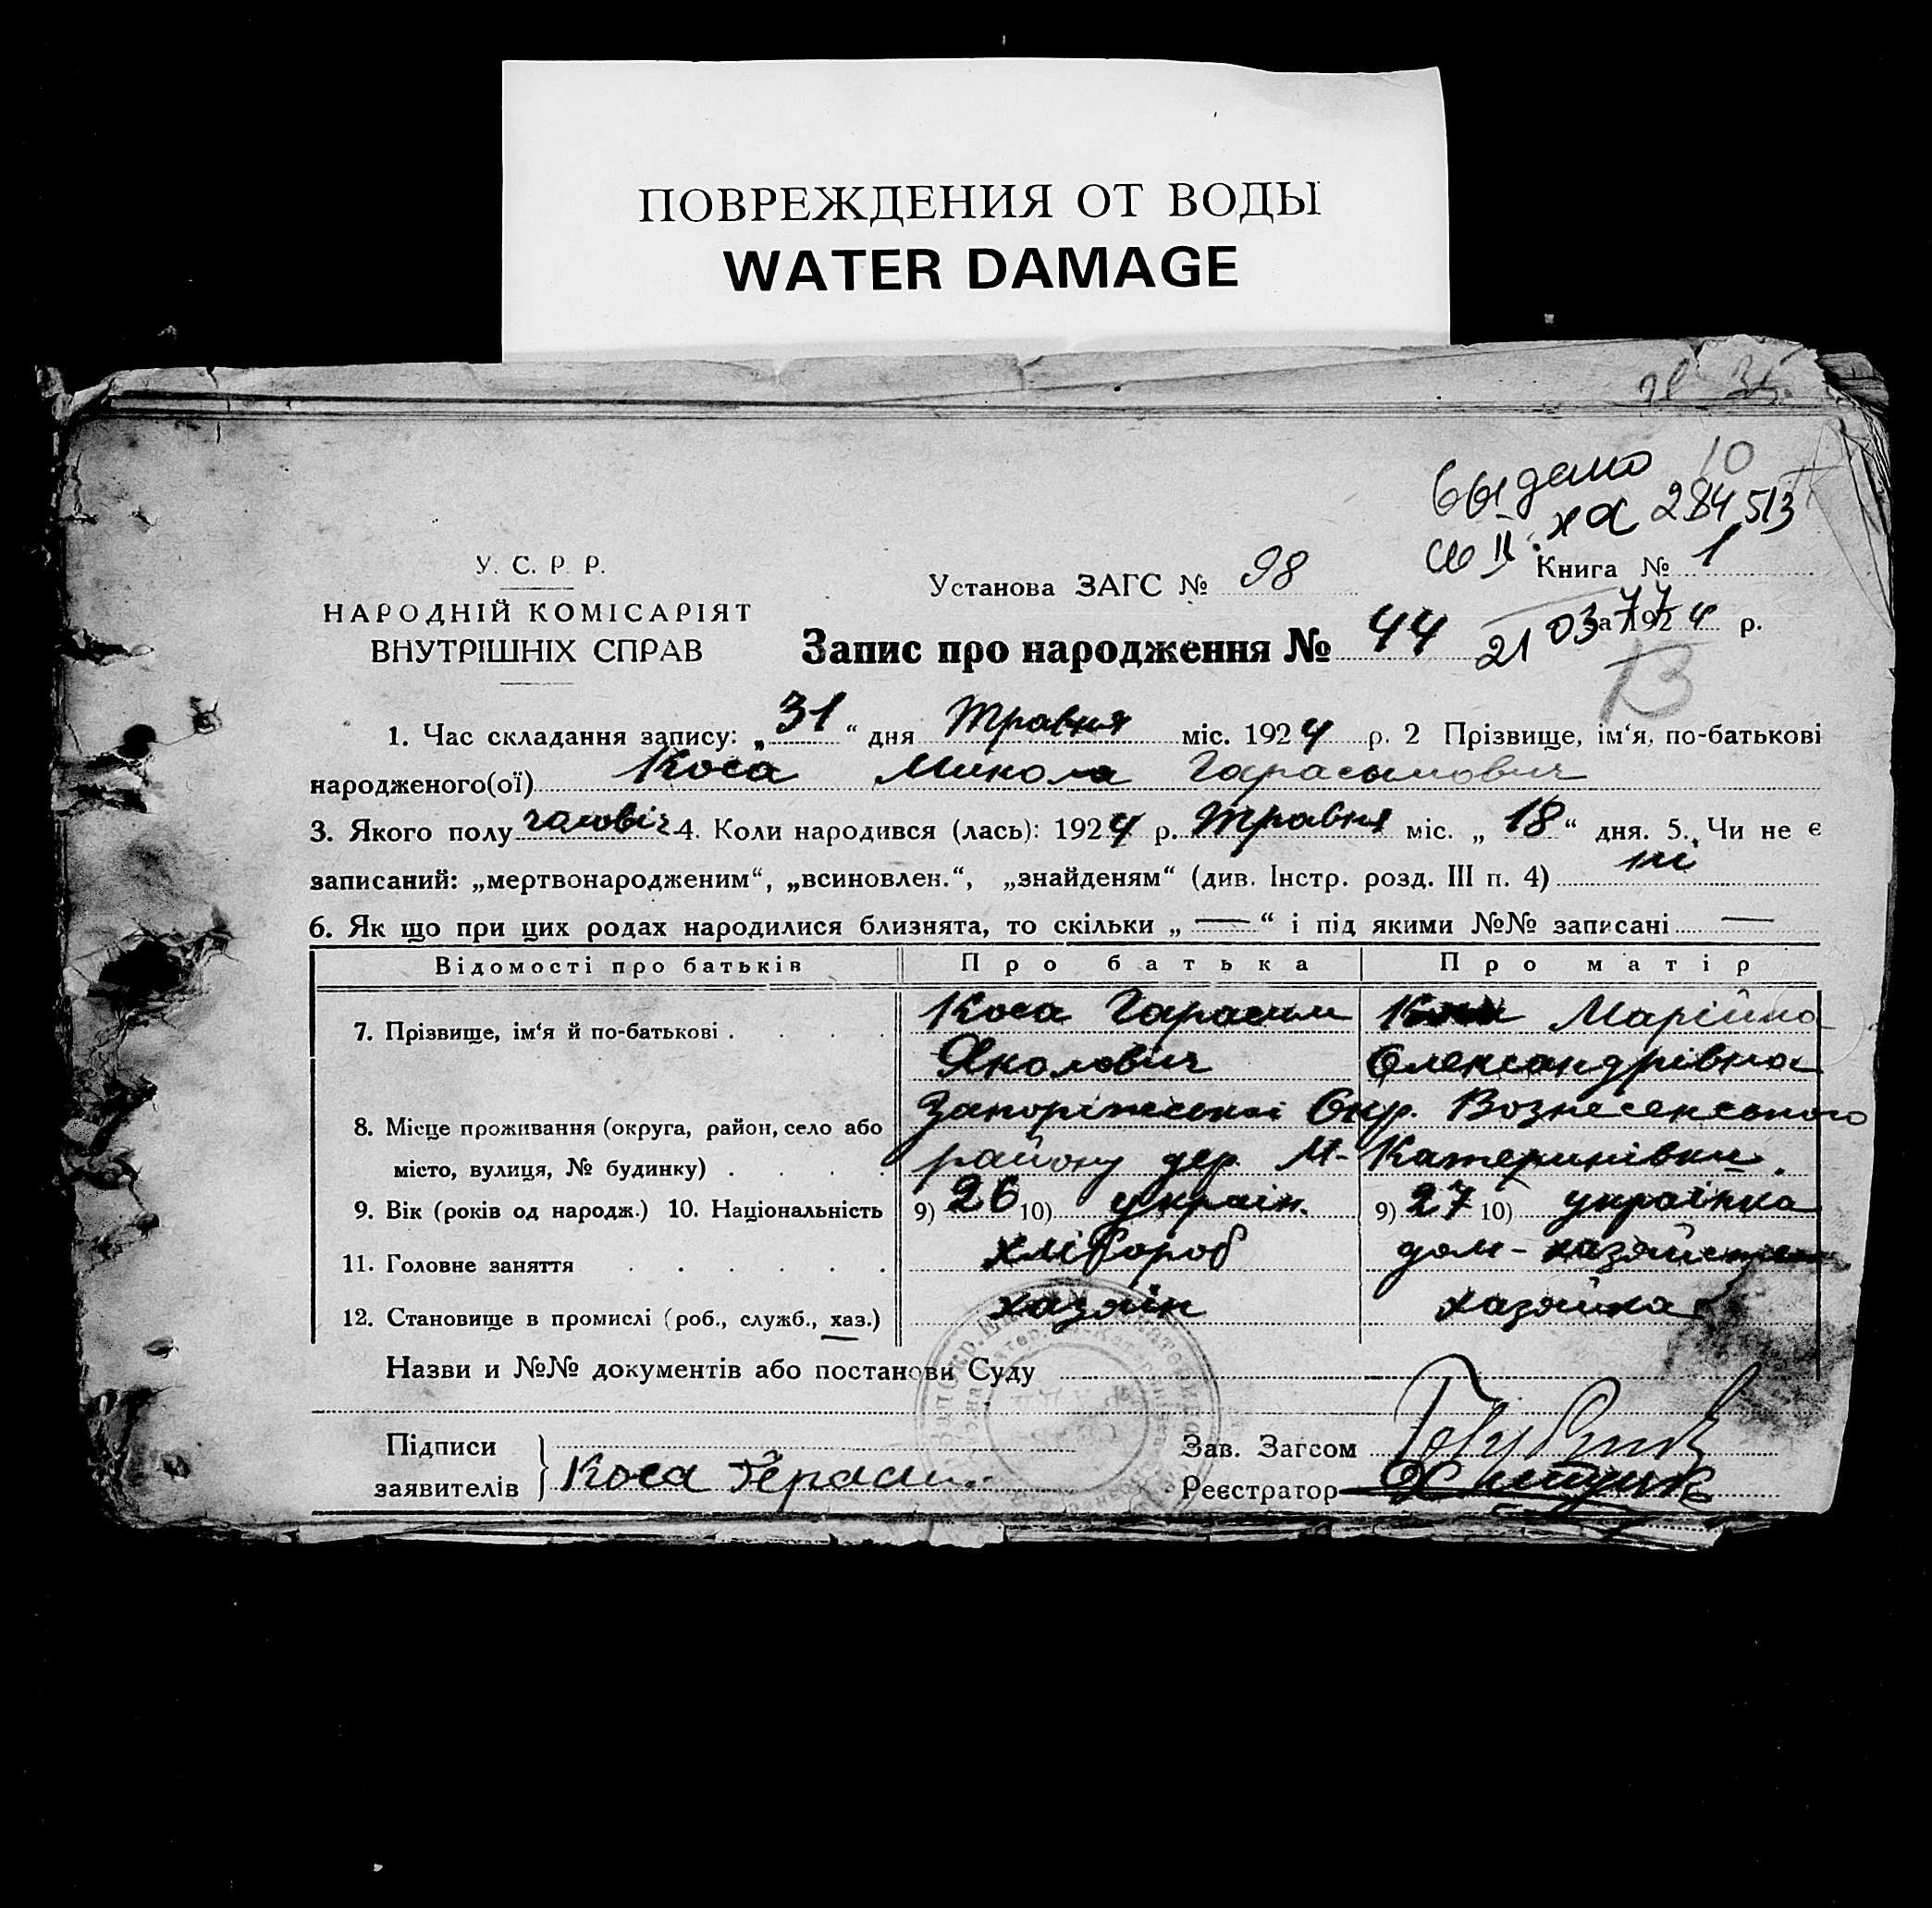 ПОВРЕЖДЕНИЯ ОТ ВОДЫ
WATER DAMAGE
выдано 10
284513
У. С. Р. Р.
НАРОДНІЙ КОМІСАРІЯТ
ВНУТРІШНІХ СПРАВ
Установа ЗАГС № 98
Книга № 1
за 1924 р.
Запис про народження № 44
21 03 77
1. Час складання запису: „31“ дня Травня міс. 1924 р. 2 Прізвище, ім‘я, по-батькові
народженого(ої) Коса Микола Гарасымович
3. Якого полу чоловіч. 4. Коли народився (лась): 1924 р. Травня міс. „18“ дня. 5. Чи не є
записаний: „мертвонародженим“, „всиновлен.“, „знайденям“ (див. Інстр. розд. III п. 4) ні
6. Як що при цих родах народилися близнята, то скільки „—“ і під якими №№ записані —
Відомості про батьків Про батька Про матір
7. Прізвище, ім‘я й по-батькові . . . . Коса Гарасим Марійна
Яковович Олександрівна
8. Місце проживання (округа, район, село або Запоріжської Окр. Вознесенського
місто, вулиця, № будинку) . . . . району дер. М-Катеринівки.
9. Вік (років од народж.) 10. Національність 9) 26 10) україн. 9) 27 10) українка
11. Головне заняття . . . . . . хлібороб дом-
12. Становище в промислі (роб., служб., хаз.) хазяін хазяйка
Назви и №№ документів або постанови Суду
Підписи
заявителів } Коса Герасим
Зав. Загсом
Реєстратор